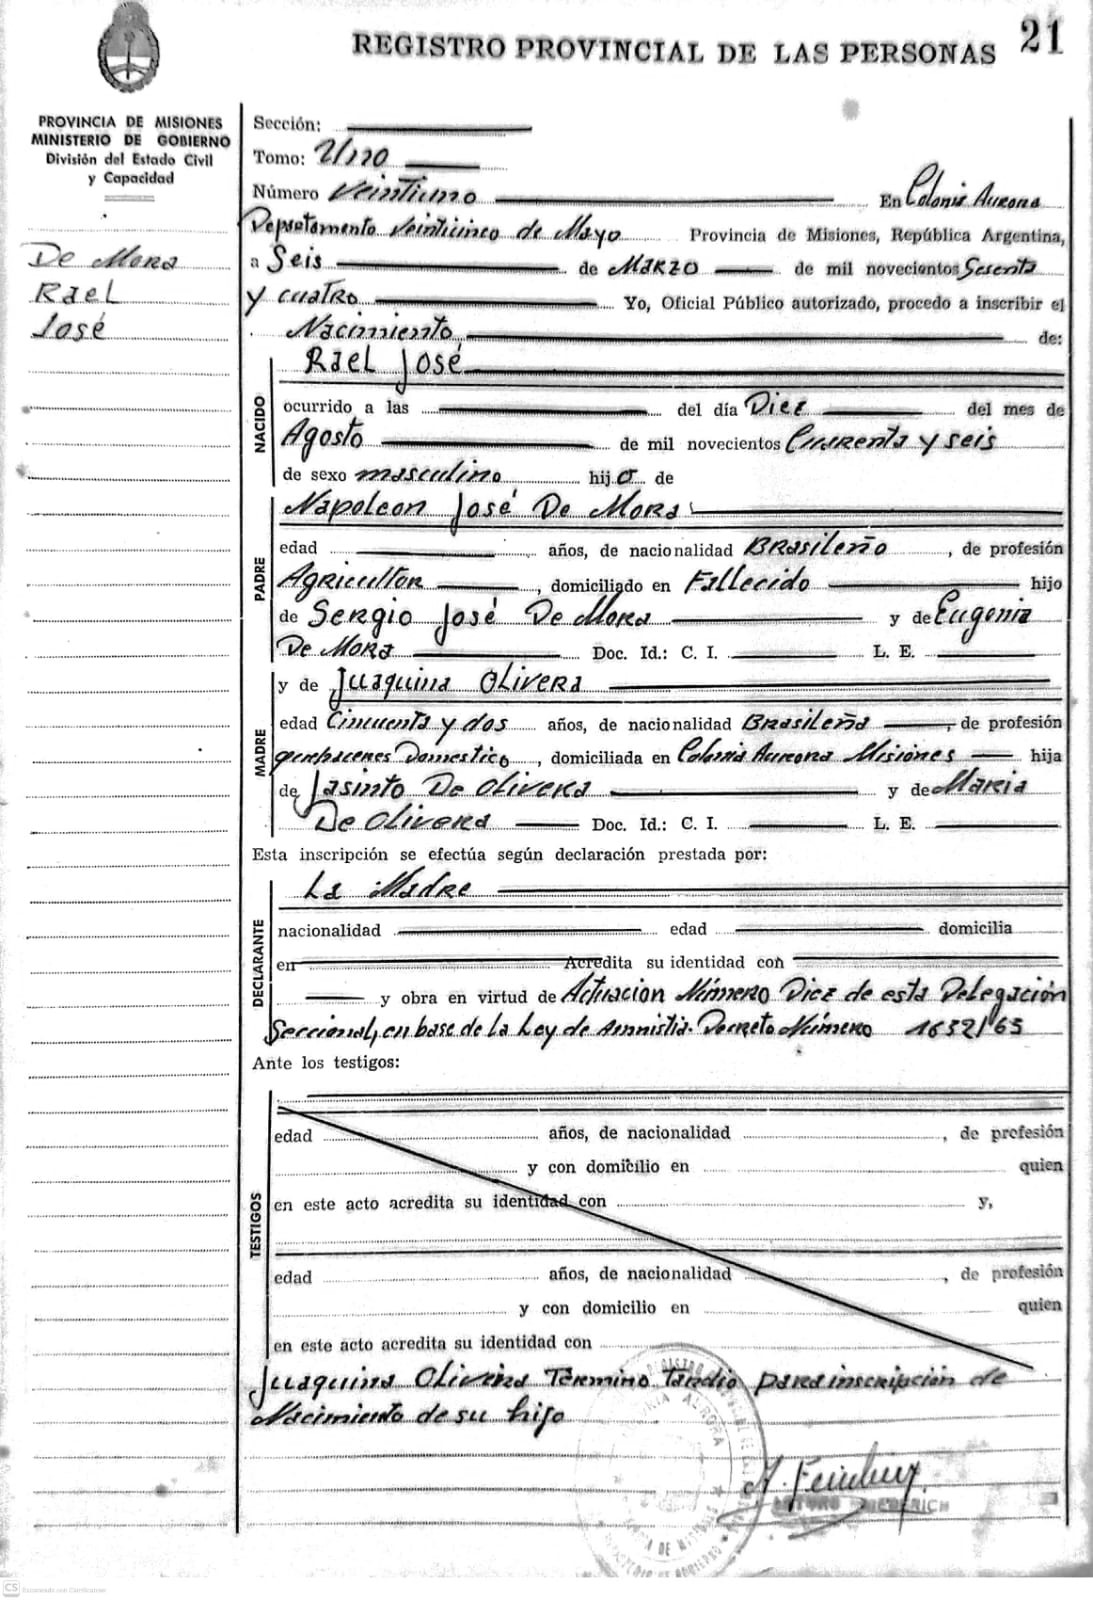 REGISTRO PROVINCIAL DE LAS PERSONAS 21
PROVINCIA DE MISIONES
MINISTERIO DE GOBIERNO
División del Estado Civil
y Capacidad
De Mora
Rael
José
Sección:
Tomo: Uno
Número Veintiuno En Colonia Aurora
Departamento Veinticinco de Mayo Provincia de Misiones, República Argentina,
a Seis de Marzo de mil novecientos Sesenta
y cuatro Yo, Oficial Público autorizado, procedo a inscribir el
Nacimiento de:
NACIDO
Rael José
ocurrido a las del día Diez del mes de
Agosto de mil novecientos Cuarenta y seis
de sexo masculino hijo de
PADRE
Napoleon José De Mora
edad años, de nacionalidad Brasileño, de profesión
Agricultor, domiciliado en Fallecido hijo
de Sergio José De Mora y de Eugenia
De Mora Doc. Id.: C. I. L. E.
MADRE
y de Juaquina Olivera
edad Cincuenta y dos años, de nacionalidad Brasileña, de profesión
quehacenes Domestico, domiciliada en Colonia Aurora Misiones hija
de Jasinto De Olivera y de Maria
De Olivera Doc. Id.: C. I. L. E.
Esta inscripción se efectúa según declaración prestada por:
DECLARANTE
La Madre
nacionalidad edad domicilia
en Acredita su identidad con
y obra en virtud de Actuacion Número Diez de esta Delegación
Seccional, en base de la Ley de Amnistia. Decreto Número 1632/63
Ante los testigos:
TESTIGOS
edad años, de nacionalidad, de profesión
y con domicilio en quien
en este acto acredita su identidad con y,
edad años, de nacionalidad, de profesión
y con domicilio en quien
en este acto acredita su identidad con
Juaquina Olivera Término Tardio para inscripción de
Nacimiento de su hijo
CS Escaneado con CamScanner